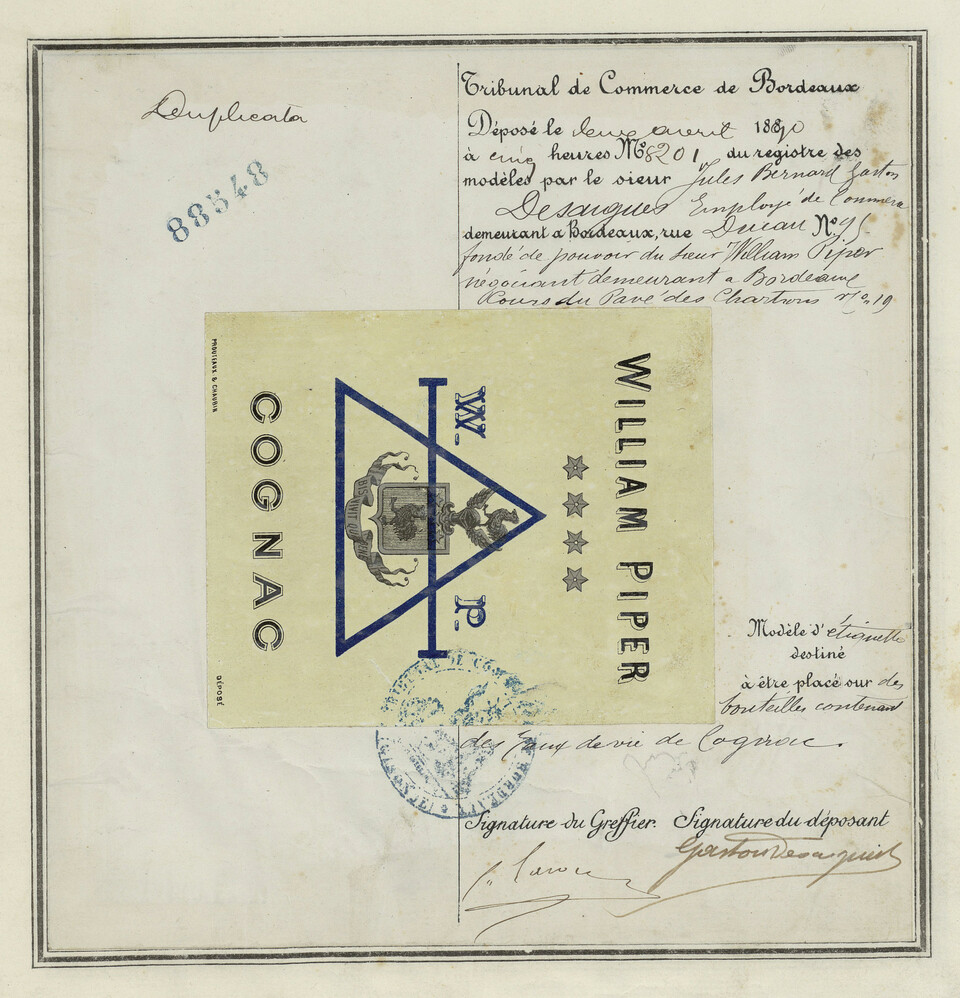 Duplicata
88548
Tribunal de Commerce de Bordeaux
Déposé le deux avril 1880
à cinq heures No 8201 du registre des
modèles par le sieur Jules Bernard Gaston
Desargues Employé de Commerce
demeurant à Bordeaux, rue No 95
fondé de pouvoir du sieur William Piper
négociant demeurant a Bordeaux
Cours du Pavé des Chartrons No 19
WILLIAM PIPER
W. P.
COGNAC
PROUTEAUX & CHAUBIN
DÉPOSÉ
Modèle d'étiquette
destiné
à être placé sur des
bouteilles contenant
des Eaux de vie de Cognac.
TRIBUNAL DE COM
BORDEAUX
Signature du Greffier. Signature du déposant